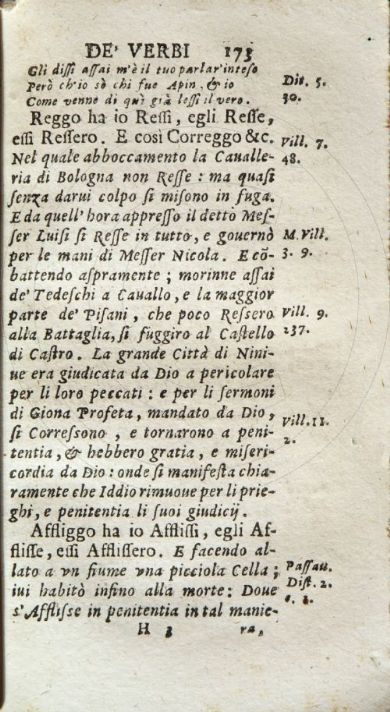 DE' VERBI 173
Gli dissi assai m'è il tuo parlar'inteso
Però ch'io sò chi fue Apin, & io
Come venne di quì già lessi il vero.
Dit. 5.
30.
Reggo ha io Ressi, egli Resse,
essi Ressero. E così Correggo &c.
Nel quale abboccamento la Caualle-
ria di Bologna non Resse : ma quasi
senza darui colpo si misono in fuga.
Vill. 7.
48.
E da quell' hora appresso il detto Mes-
ser Luisi si Resse in tutto, e gouernò
per le mani di Messer Nicola. E cō-
M. Vill.
3. 9.
battendo aspramente ; morinne assai
de' Tedeschi a Cauallo, e la maggior
parte de' Pisani, che poco Ressero
alla Battaglia, si fuggiro al Castello
Vill. 9.
237.
di Castro. La grande Città di Nini-
ue era giudicata da Dio a pericolare
per li loro peccati : e per li sermoni
di Giona Profeta, mandato da Dio,
si Corressono, e tornarono a peni-
Vill. 11.
2.
tentia, & hebbero gratia, e miseri-
cordia da Dio : onde si manifesta chia-
ramente che Iddio rimuoue per li prie-
ghi, e penitentia li suoi giudicij.
Affliggo ha io Afflissi, egli Af-
flisse, essi Afflissero. E facendo al-
lato a vn fiume vna picciola Cella ;
iui habitò infino alla morte : Doue
s'Afflisse in penitentia in tal manie-
Passau.
Dist. 2.
H 3 ra,